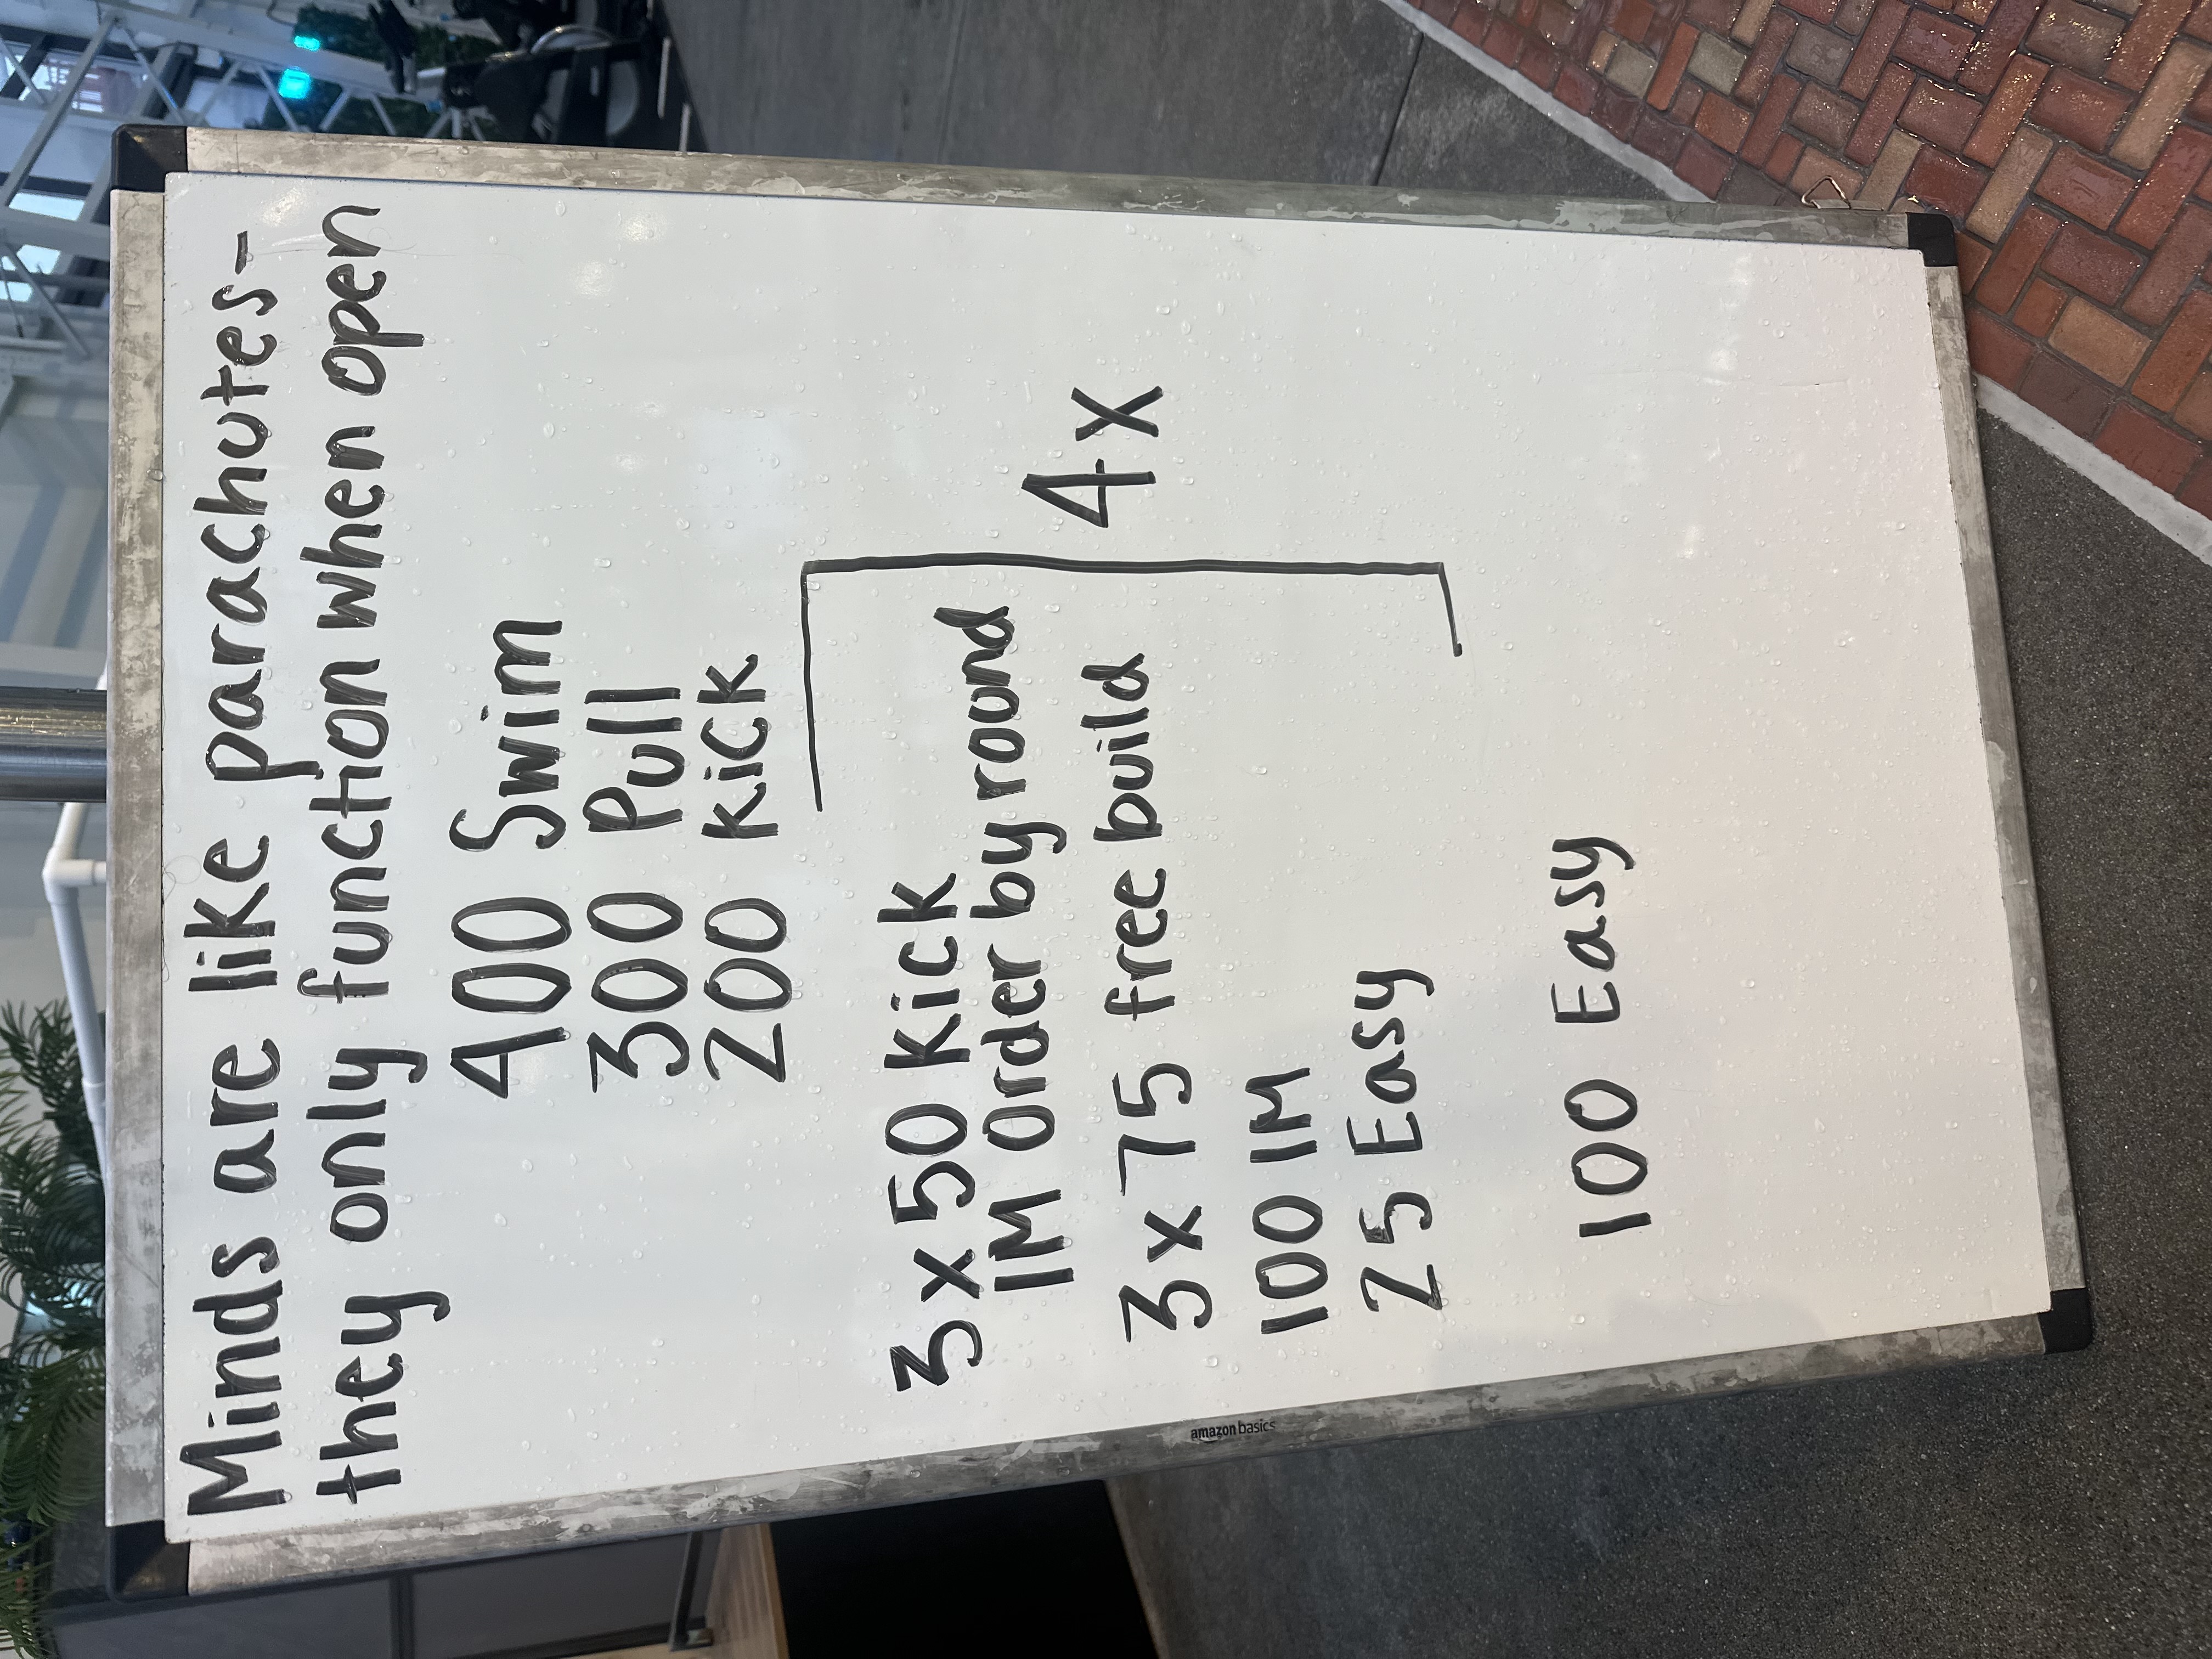 Minds are like parachutes-
they only function when open
400 Swim
300 Pull
200 Kick
3 x 50 Kick
IM Order by round
3 x 75 free build
100 IM
25 Easy
4x
100 Easy
amazon basics